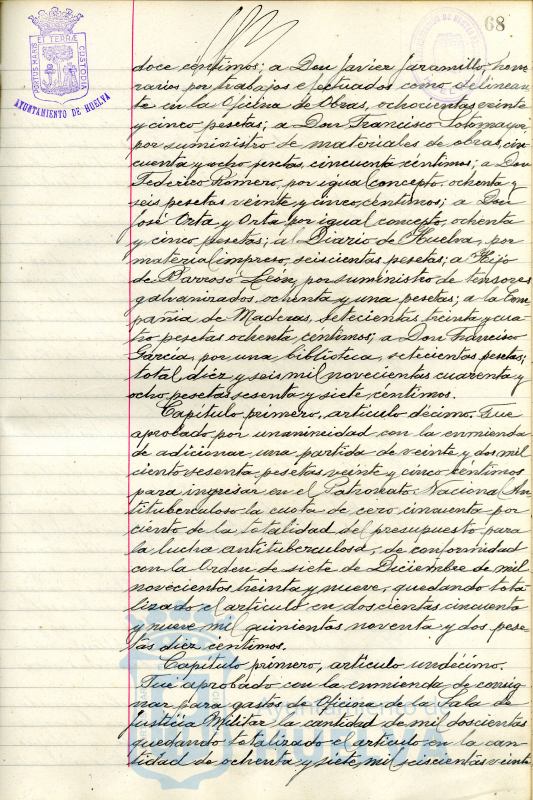 68
PORTUS MARIS ET TERRAE CUSTODIA
AYUNTAMIENTO DE HUELVA
doce céntimos; a Don Javier Jaramillo, hono-
rarios por trabajos efectuados como delinean-
te en la Oficina de Obras, ochocientas veinte
y cinco pesetas; a Don Francisco Sotomayor,
por suministro de materiales de obras, cin-
cuenta y ocho pesetas, cincuenta céntimos; a Don
Federico Romero, por igual concepto, ochenta y
seis pesetas veinte y cinco céntimos; a Don
José Orta y Orta, por igual concepto, ochenta
y cinco pesetas; al Diario de Huelva, por
material impreso, seiscientas pesetas; a Hijo
de Barroso León, por suministro de tensores
galvanizados, ochenta y una pesetas; a la Com-
pañia de Maderas, setecientas treinta y cua-
tro pesetas ochenta céntimos; a Don Francisco
García, por una biblioteca, setecientas pesetas;
total diez y seis mil novecientas cuarenta y
ocho pesetas sesenta y siete céntimos.
Capítulo primero, artículo décimo. Fue
aprobado por unanimidad con la enmienda
de adicionar una partida de veinte y dos mil
ciento sesenta pesetas veinte y cinco céntimos
para ingresar en el Patronato Nacional An-
tituberculoso la cuota de cero, cincuenta por
ciento de la totalidad del presupuesto, para
la lucha antituberculosa, de conformidad
con la Orden de siete de Diciembre de mil
novecientos treinta y nueve, quedando tota-
lizado el artículo en doscientas cincuenta
y nueve mil quinientas noventa y dos pese-
tas diez céntimos.
Capítulo primero, artículo undécimo.
Fue aprobado con la enmienda de consig-
nar para gastos de Oficina de la Sala de
Justicia Militar la cantidad de mil doscientas
quedando totalizado el artículo en la can-
tidad de ochenta y siete mil seiscientas veinte
Ayuntamiento de
HUELVA